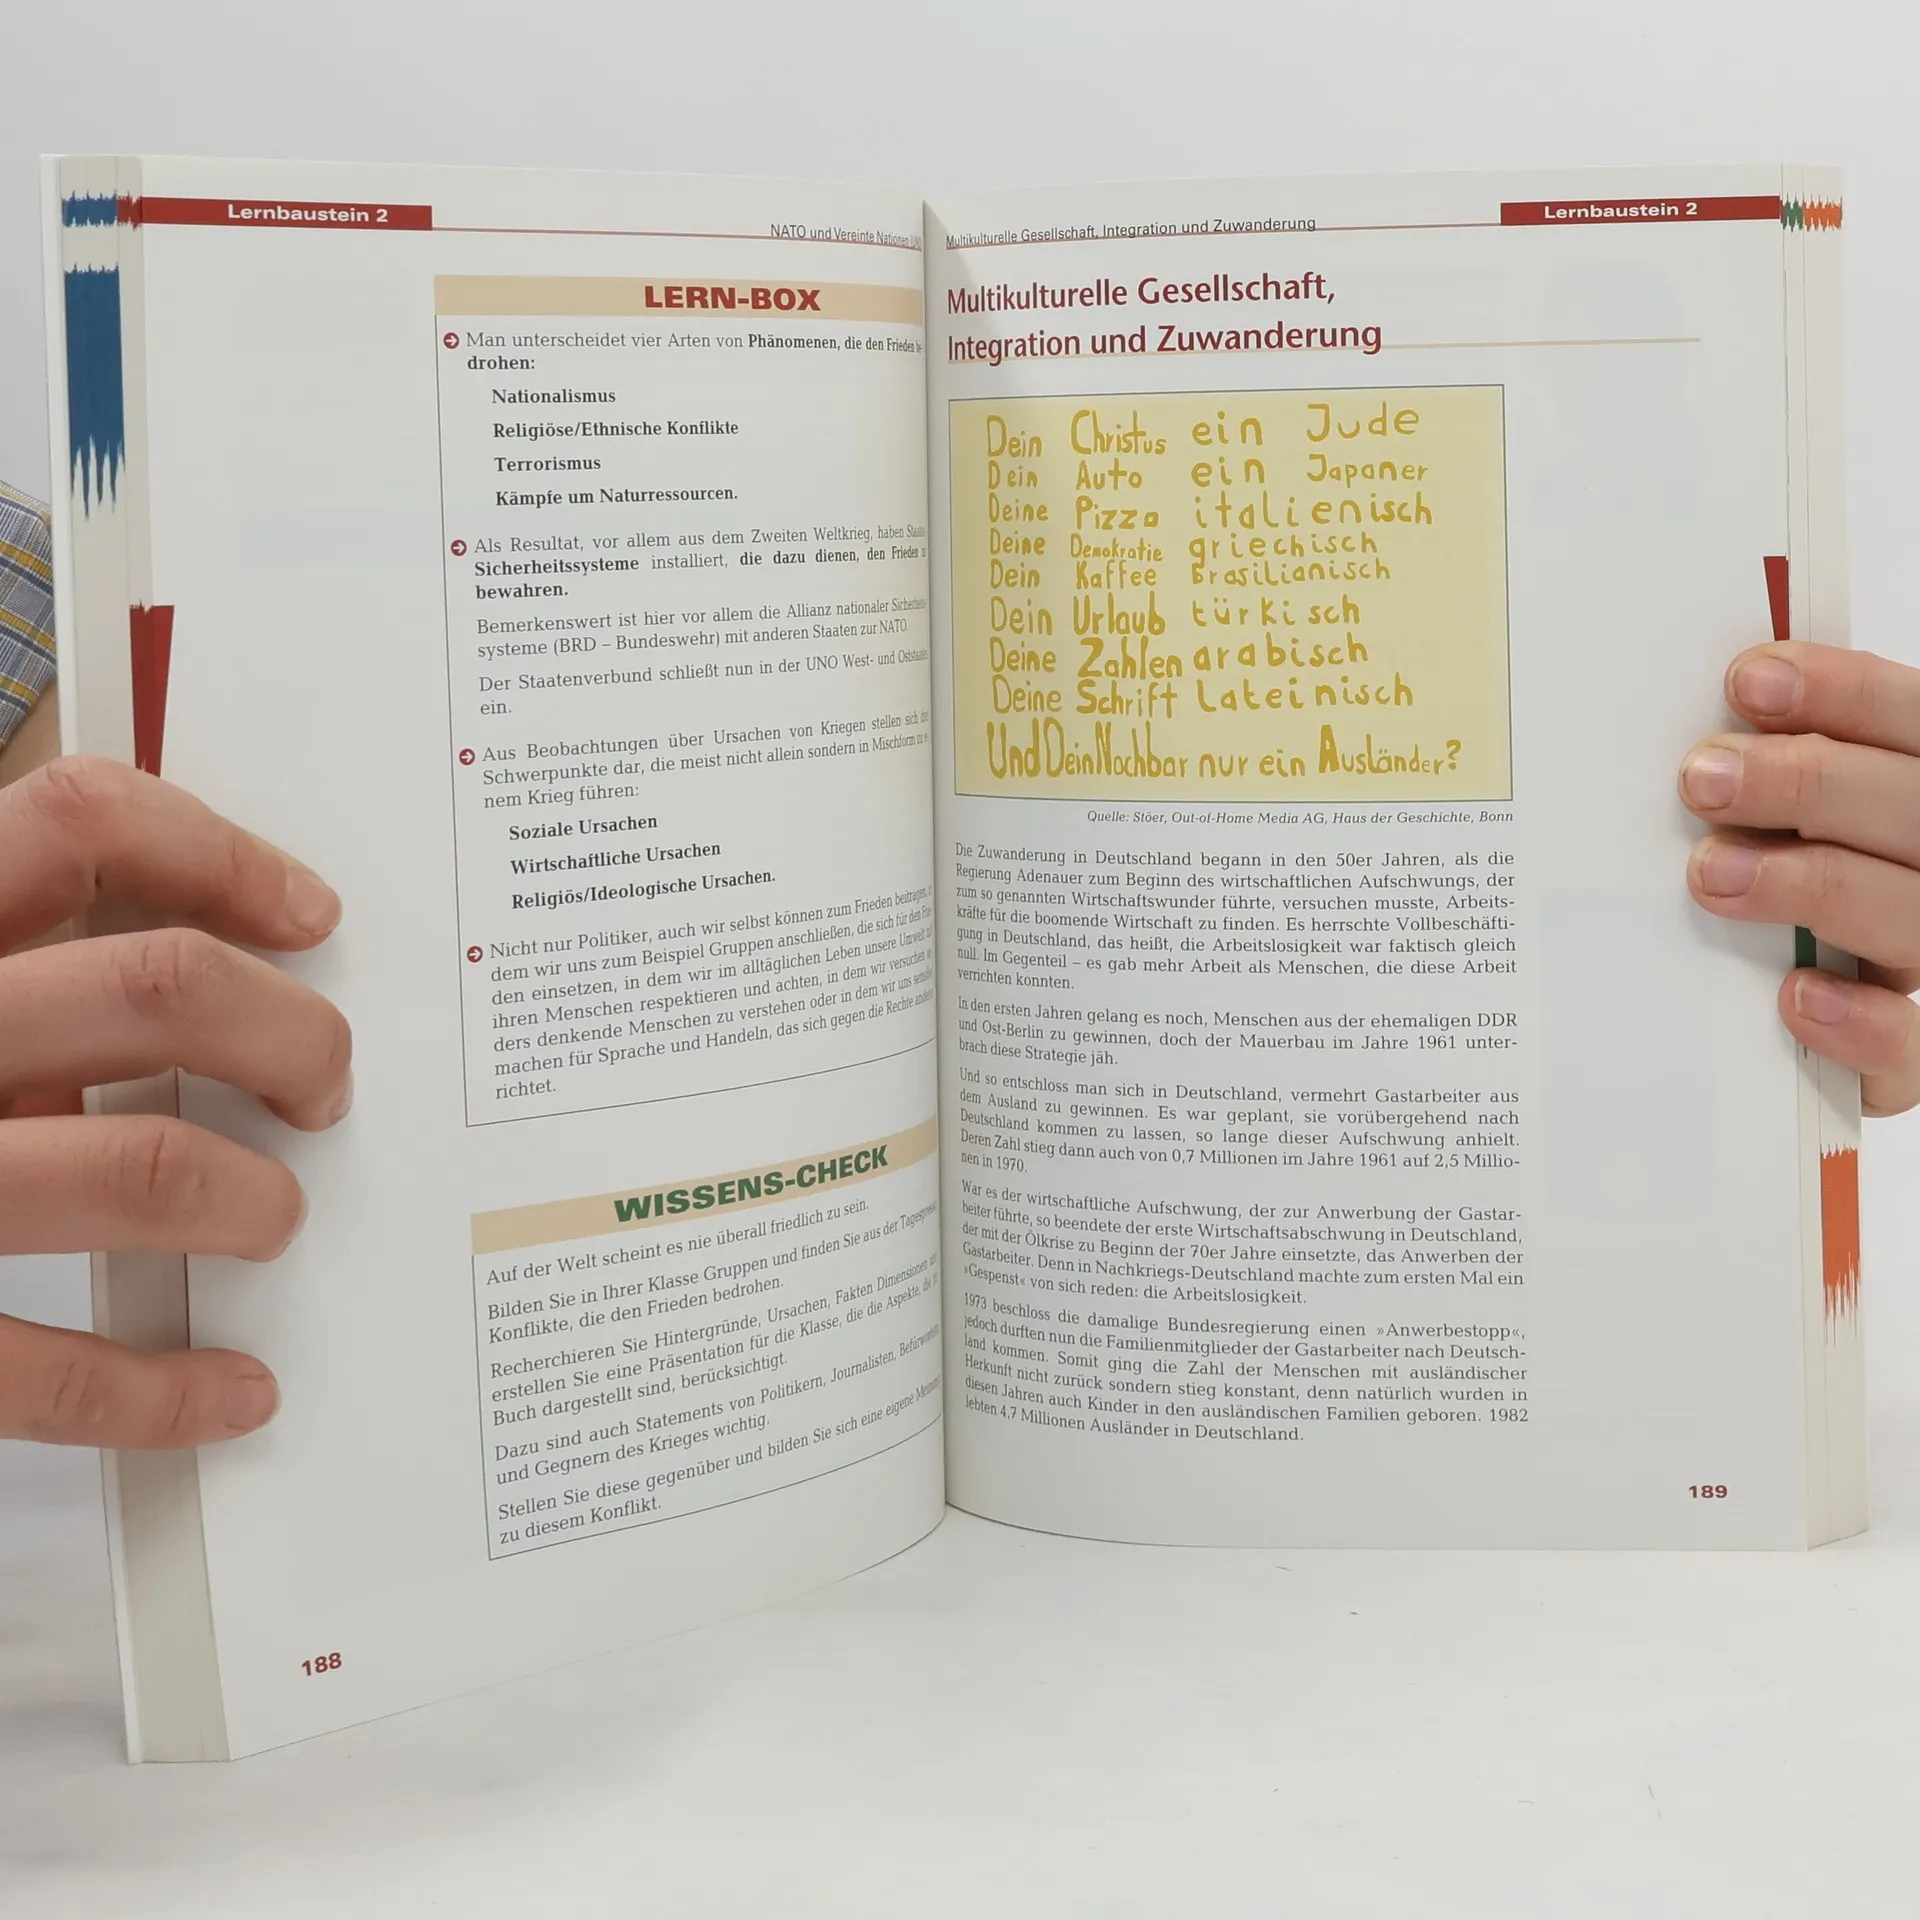 Lernbaustein 2
NATO und Vereinte Nationen
LERN-BOX
Man unterscheidet vier Arten von Phänomenen, die den Frieden be-
drohen:
Nationalismus
Religiöse/Ethnische Konflikte
Terrorismus
Kämpfe um Naturressourcen.
Als Resultat, vor allem aus dem Zweiten Weltkrieg, haben
Sicherheitssysteme installiert, die dazu dienen, den Frieden
bewahren.
Bemerkenswert ist hier vor allem die Allianz nationaler Sicherheits-
systeme (BRD – Bundeswehr) mit anderen Staaten zur NATO.
Der Staatenverbund schließt nun in der UNO West- und Oststaaten
ein.
Aus Beobachtungen über Ursachen von Kriegen stellen sich drei
Schwerpunkte dar, die meist nicht allein sondern in Mischform zu ei-
nem Krieg führen:
Soziale Ursachen
Wirtschaftliche Ursachen
Religiös/Ideologische Ursachen.
Nicht nur Politiker, auch wir selbst können zum Frieden beitragen,
dem wir uns zum Beispiel Gruppen anschließen, die sich für den Frie-
den einsetzen, in dem wir im alltäglichen Leben unsere Umwelt
ihren Menschen respektieren und achten, in dem wir versuchen
ders denkende Menschen zu verstehen oder in dem wir uns sensibel
machen für Sprache und Handeln, das sich gegen die Rechte anderer
richtet.
WISSENS-CHECK
Auf der Welt scheint es nie überall friedlich zu sein.
Bilden Sie in Ihrer Klasse Gruppen und finden Sie aus der Tagespresse
Konflikte, die den Frieden bedrohen.
Recherchieren Sie Hintergründe, Ursachen, Fakten Dimensionen und
erstellen Sie eine Präsentation für die Klasse, die die Aspekte, die im
Buch dargestellt sind, berücksichtigt.
Dazu sind auch Statements von Politikern, Journalisten, Befürwortern
und Gegnern des Krieges wichtig.
Stellen Sie diese gegenüber und bilden Sie sich eine eigene Meinung
zu diesem Konflikt.
188
Multikulturelle Gesellschaft, Integration und Zuwanderung
Lernbaustein 2
Multikulturelle Gesellschaft,
Integration und Zuwanderung
Dein Christus ein Jude
Dein Auto ein Japaner
Deine Pizza italienisch
Deine Demokratie griechisch
Dein Kaffee Brasilianisch
Dein Urlaub türkisch
Deine Zahlen arabisch
Deine Schrift Lateinisch
Und Dein Nachbar nur ein Ausländer?
Quelle: Ströer, Out-of-Home Media AG, Haus der Geschichte, Bonn
Die Zuwanderung in Deutschland begann in den 50er Jahren, als die
Regierung Adenauer zum Beginn des wirtschaftlichen Aufschwungs, der
zum so genannten Wirtschaftswunder führte, versuchen musste, Arbeits-
kräfte für die boomende Wirtschaft zu finden. Es herrschte Vollbeschäfti-
gung in Deutschland, das heißt, die Arbeitslosigkeit war faktisch gleich
null. Im Gegenteil – es gab mehr Arbeit als Menschen, die diese Arbeit
verrichten konnten.
In den ersten Jahren gelang es noch, Menschen aus der ehemaligen DDR
und Ost-Berlin zu gewinnen, doch der Mauerbau im Jahre 1961 unter-
brach diese Strategie jäh.
Und so entschloss man sich in Deutschland, vermehrt Gastarbeiter aus
dem Ausland zu gewinnen. Es war geplant, sie vorübergehend nach
Deutschland kommen zu lassen, so lange dieser Aufschwung anhielt.
Deren Zahl stieg dann auch von 0,7 Millionen im Jahre 1961 auf 2,5 Millio-
nen in 1970.
War es der wirtschaftliche Aufschwung, der zur Anwerbung der Gastar-
beiter führte, so beendete der erste Wirtschaftsabschwung in Deutschland,
der mit der Ölkrise zu Beginn der 70er Jahre einsetzte, das Anwerben der
Gastarbeiter. Denn in Nachkriegs-Deutschland machte zum ersten Mal ein
»Gespenst« von sich reden: die Arbeitslosigkeit.
1973 beschloss die damalige Bundesregierung einen »Anwerbestopp«,
jedoch durften nun die Familienmitglieder der Gastarbeiter nach Deutsch-
land kommen. Somit ging die Zahl der Menschen mit ausländischer
Herkunft nicht zurück sondern stieg konstant, denn natürlich wurden in
diesen Jahren auch Kinder in den ausländischen Familien geboren. 1982
lebten 4,7 Millionen Ausländer in Deutschland.
189